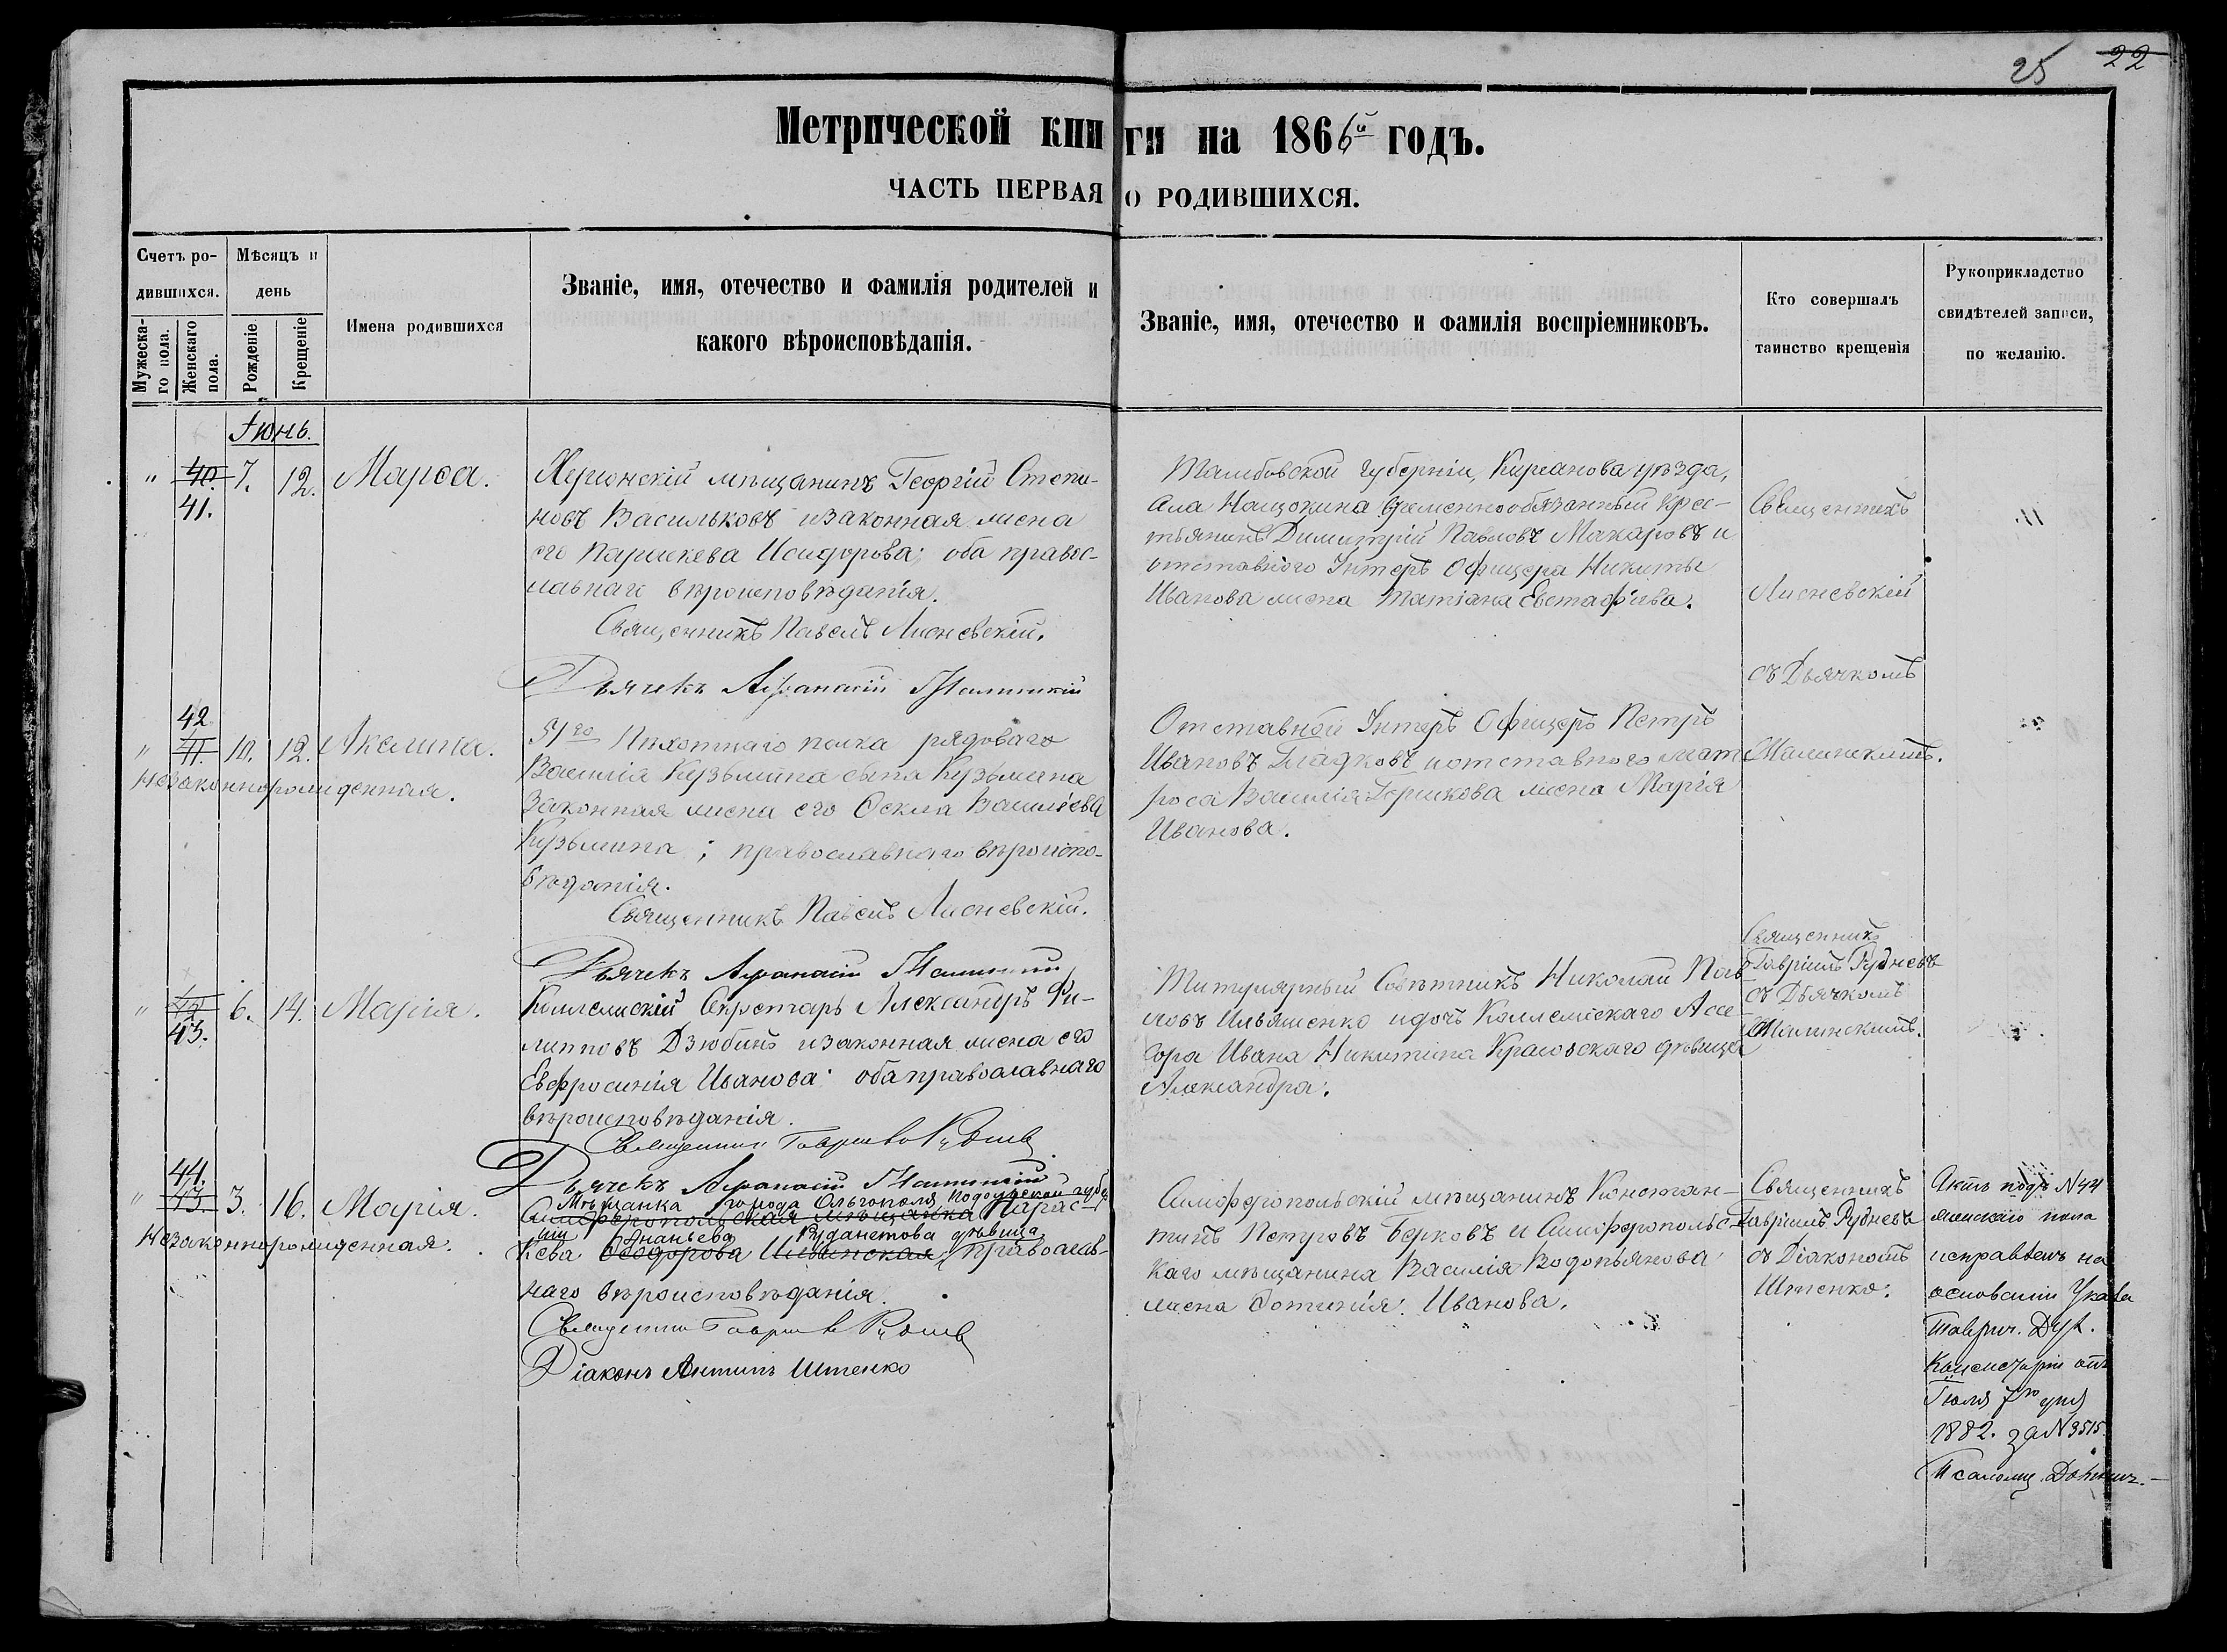 25 22
Метрической книги на 1866й годъ.
ЧАСТЬ ПЕРВАЯ О РОДИВШИХСЯ.
Счетъ родившихся.
Мужескаго пола.
Женскаго пола.
Мѣсяцъ и день
Рожденіе
Крещеніе
Имена родившихся
Званіе, имя, отечество и фамилія родителей и
какого вѣроисповѣданія.
Званіе, имя, отечество и фамилія воспріемниковъ.
Кто совершалъ
таинство крещенія
Рукоприкладство
свидѣтелей записи,
по желанію.
Іюнь.
" 40. 7. 12. Марѳа.
41.
Херсонскій мѣщанинъ Георгій Стефа-
новъ Васильковъ и законная жена
его Параскева Исидорова; оба правос-
лавнаго вѣроисповѣданія.
Священникъ Павелъ Лисневскій.
Дьячекъ Аѳанасій
Тамбовской губерніи, Кирсанова уѣзда,
села Нащокина временнообязанный крес-
тьянинъ Димитрій Павловъ Макаровъ и
отставного Унтеръ Офицера Никиты
Иванова жена Татіана Евстафіева.
Священникъ
Лисневскій
съ Дьячкомъ
42
" 41. 10. 12. Акелина.
Незаконнорожденная.
Пѣхотнаго полка рядоваго
Василія Кузьмина сына Кузьмина
законная жена его Ѳекла Василіева
Кузьмина; православнаго вѣроиспо-
вѣданія.
Священникъ Павелъ Лисневскій.
Дьячекъ Аѳанасій
Отставной Унтеръ Офицеръ Петръ
Ивановъ Гладковъ и отставного мат
роса Василія жена Марія
Иванова.
" 42. 6. 14. Марія.
43.
Коллежскій Секретарь Александръ Фи-
липповъ Дзюбинъ и законная жена его
Евфросинія Иванова; оба православнаго
вѣроисповѣданія.
Священникъ Гавріилъ Рудневъ
Дьячекъ Аѳанасій
Титулярный Совѣтникъ Николай Пав
ловъ Ильяшенко и дочь Коллежскаго Ассе-
сора Ивана Никитина Красовскаго дѣвица
Александра.
Священникъ
Гавріилъ Рудневъ
съ Дьячкомъ
44.
" 43. 3. 16. Марія.
Незаконнорожденная.
Мѣщанка города Ольгополя Подольской губер
Симферопольская мѣщанка Парас-
ніи Ананьева дѣвица
кева Ѳеодорова православ-
наго вѣроисповѣданія.
Священникъ Гавріилъ Рудневъ
Діаконъ Антипъ Штенко
Симферопольскій мѣщанинъ Констан-
тинъ Петровъ Берковъ и Симферопольс-
каго мѣщанина Василія Водопьянова
жена Фотинія Иванова.
Священникъ
Гавріилъ Рудневъ
съ Діакономъ
Штенко.
Актъ подъ N 44
женскаго пола
исправленъ на
основаніи Указа
Таврич. Дух.
Консисторіи отъ
Іюля 7го дня
1882. за N 3515.
Псаломщ.